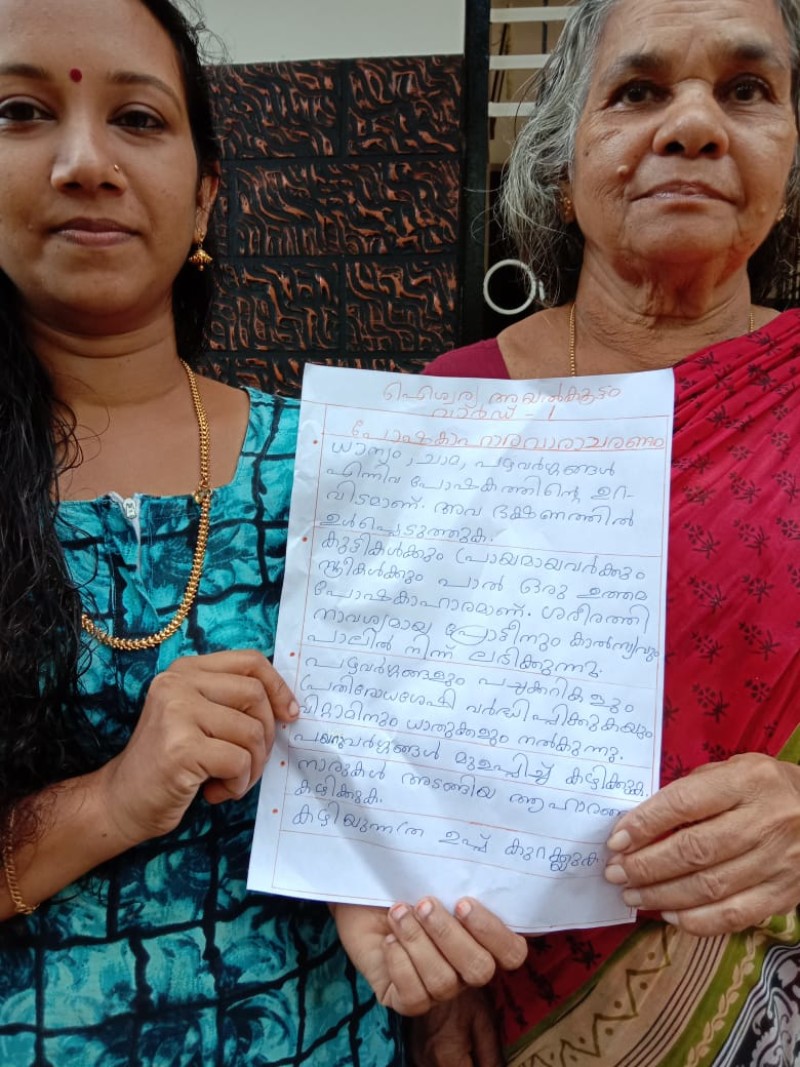 ഐശ്വര്യ അയൽക്കൂട്ടം
വാർഡ് - 1
പോഷകാഹാരവാരാചരണം
ധാന്യം, ചാമ, പഴവർഗ്ഗങ്ങൾ
എന്നിവ പോഷകത്തിന്റെ ഉറ-
വിടമാണ്. അവ ഭക്ഷണത്തിൽ
ഉൾപ്പെടുത്തുക.
കുട്ടികൾക്കും പ്രായമായവർക്കും
സ്ത്രീകൾക്കും പാൽ ഒരു ഉത്തമ
പോഷകാഹാരമാണ്. ശരീരത്തി
നാവശ്യമായ പ്രോട്ടീനും കാൽസ്യവും
പാലിൽ നിന്ന് ലഭിക്കുന്നു.
പഴവർഗ്ഗങ്ങളും പച്ചക്കറികളും
പ്രതിരോധശേഷി വർദ്ധിപ്പിക്കുകയും
വിറ്റാമിനും ധാതുക്കളും നൽകുന്നു.
പയറുവർഗ്ഗങ്ങൾ മുളപ്പിച്ച് കഴിക്കുക.
നാരുകൾ അടങ്ങിയ
കഴിക്കുക.
കഴിയുന്നത്ര ഉപ്പ് കുറക്കുക.